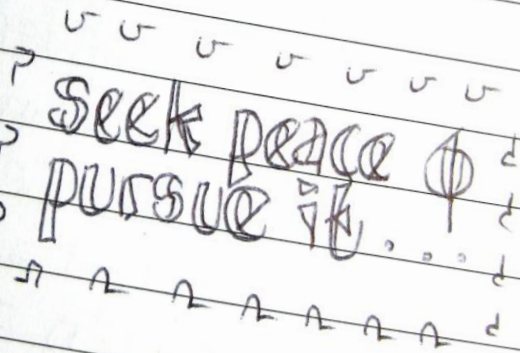 seek peace &
pursue it....